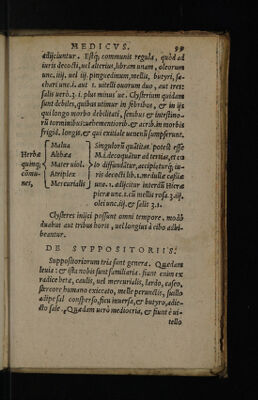 MEDICVS. 99
adijciuntur. Estq́; communis regula, quòd ad
iuris decocti, uel alterius, libram unam, oleorum
unc. iiij. uel iij. pinguedinum, mellis, butyri, sa-
chari unc. i. aut 1. uitelli ouorum duo, aut tres:
salis uerò.3 1. plus minus'ue. Clysterium quidam
sunt debiles, quibus utimur in febribus, & in ijs
qui longo morbo debilitati, senibus & intestino-
rū torminibus: uehementiorib. & acrib. in morbis
frigid. longis, & qui exitiale uenenū sumpserunt.
Herbæ quinq; comu- nes,
Malua
Althæa
Mater uiol.
Atriplex
Mercurialis
Singulorū quātitas potest esse
M.i. decoquātur ad tertias, et co
lo diffundātur, accipiaturq́; iu-
ris decocti lib. 1. medullæ casiæ
unc. 1. adijcitur interdū Hieræ
picræ unc. 1. cū mellis rosa. ʒ iij.
olei unc. iij. & salis ʒ 1.
Clysteres inijci possunt omni tempore. modò
duabus aut tribus horis, uel longius à cibo adhi-
beantur.
DE SVPPOSITORIIS.
Suppositoriorum tria sunt genera. Quædam
leuia: & ista nobis sunt familiaria. fiunt enim ex
radice beta, caulis, uel mercurialis, lardo, caseo,
stercore humano exiccato, melle perunctis, suillo
adipe sal consperso, ficu inuersa, & butyro, adie-
cto sale. Quædam uerò mediocria, & fiunt è ui-
tello